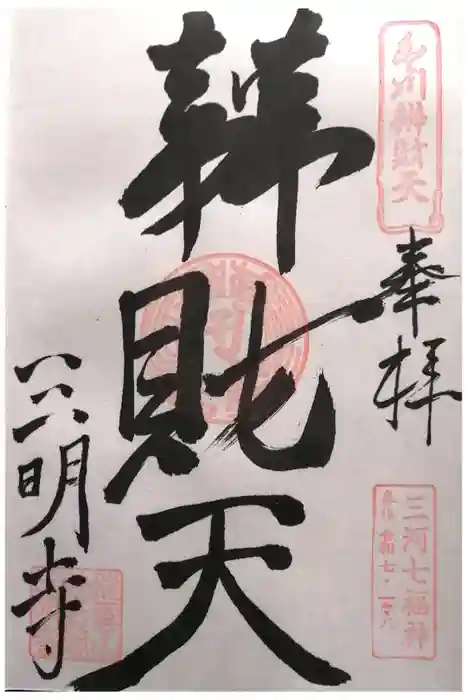 豊川辨財天
奉拝
三河七福神
辨財天
三明寺